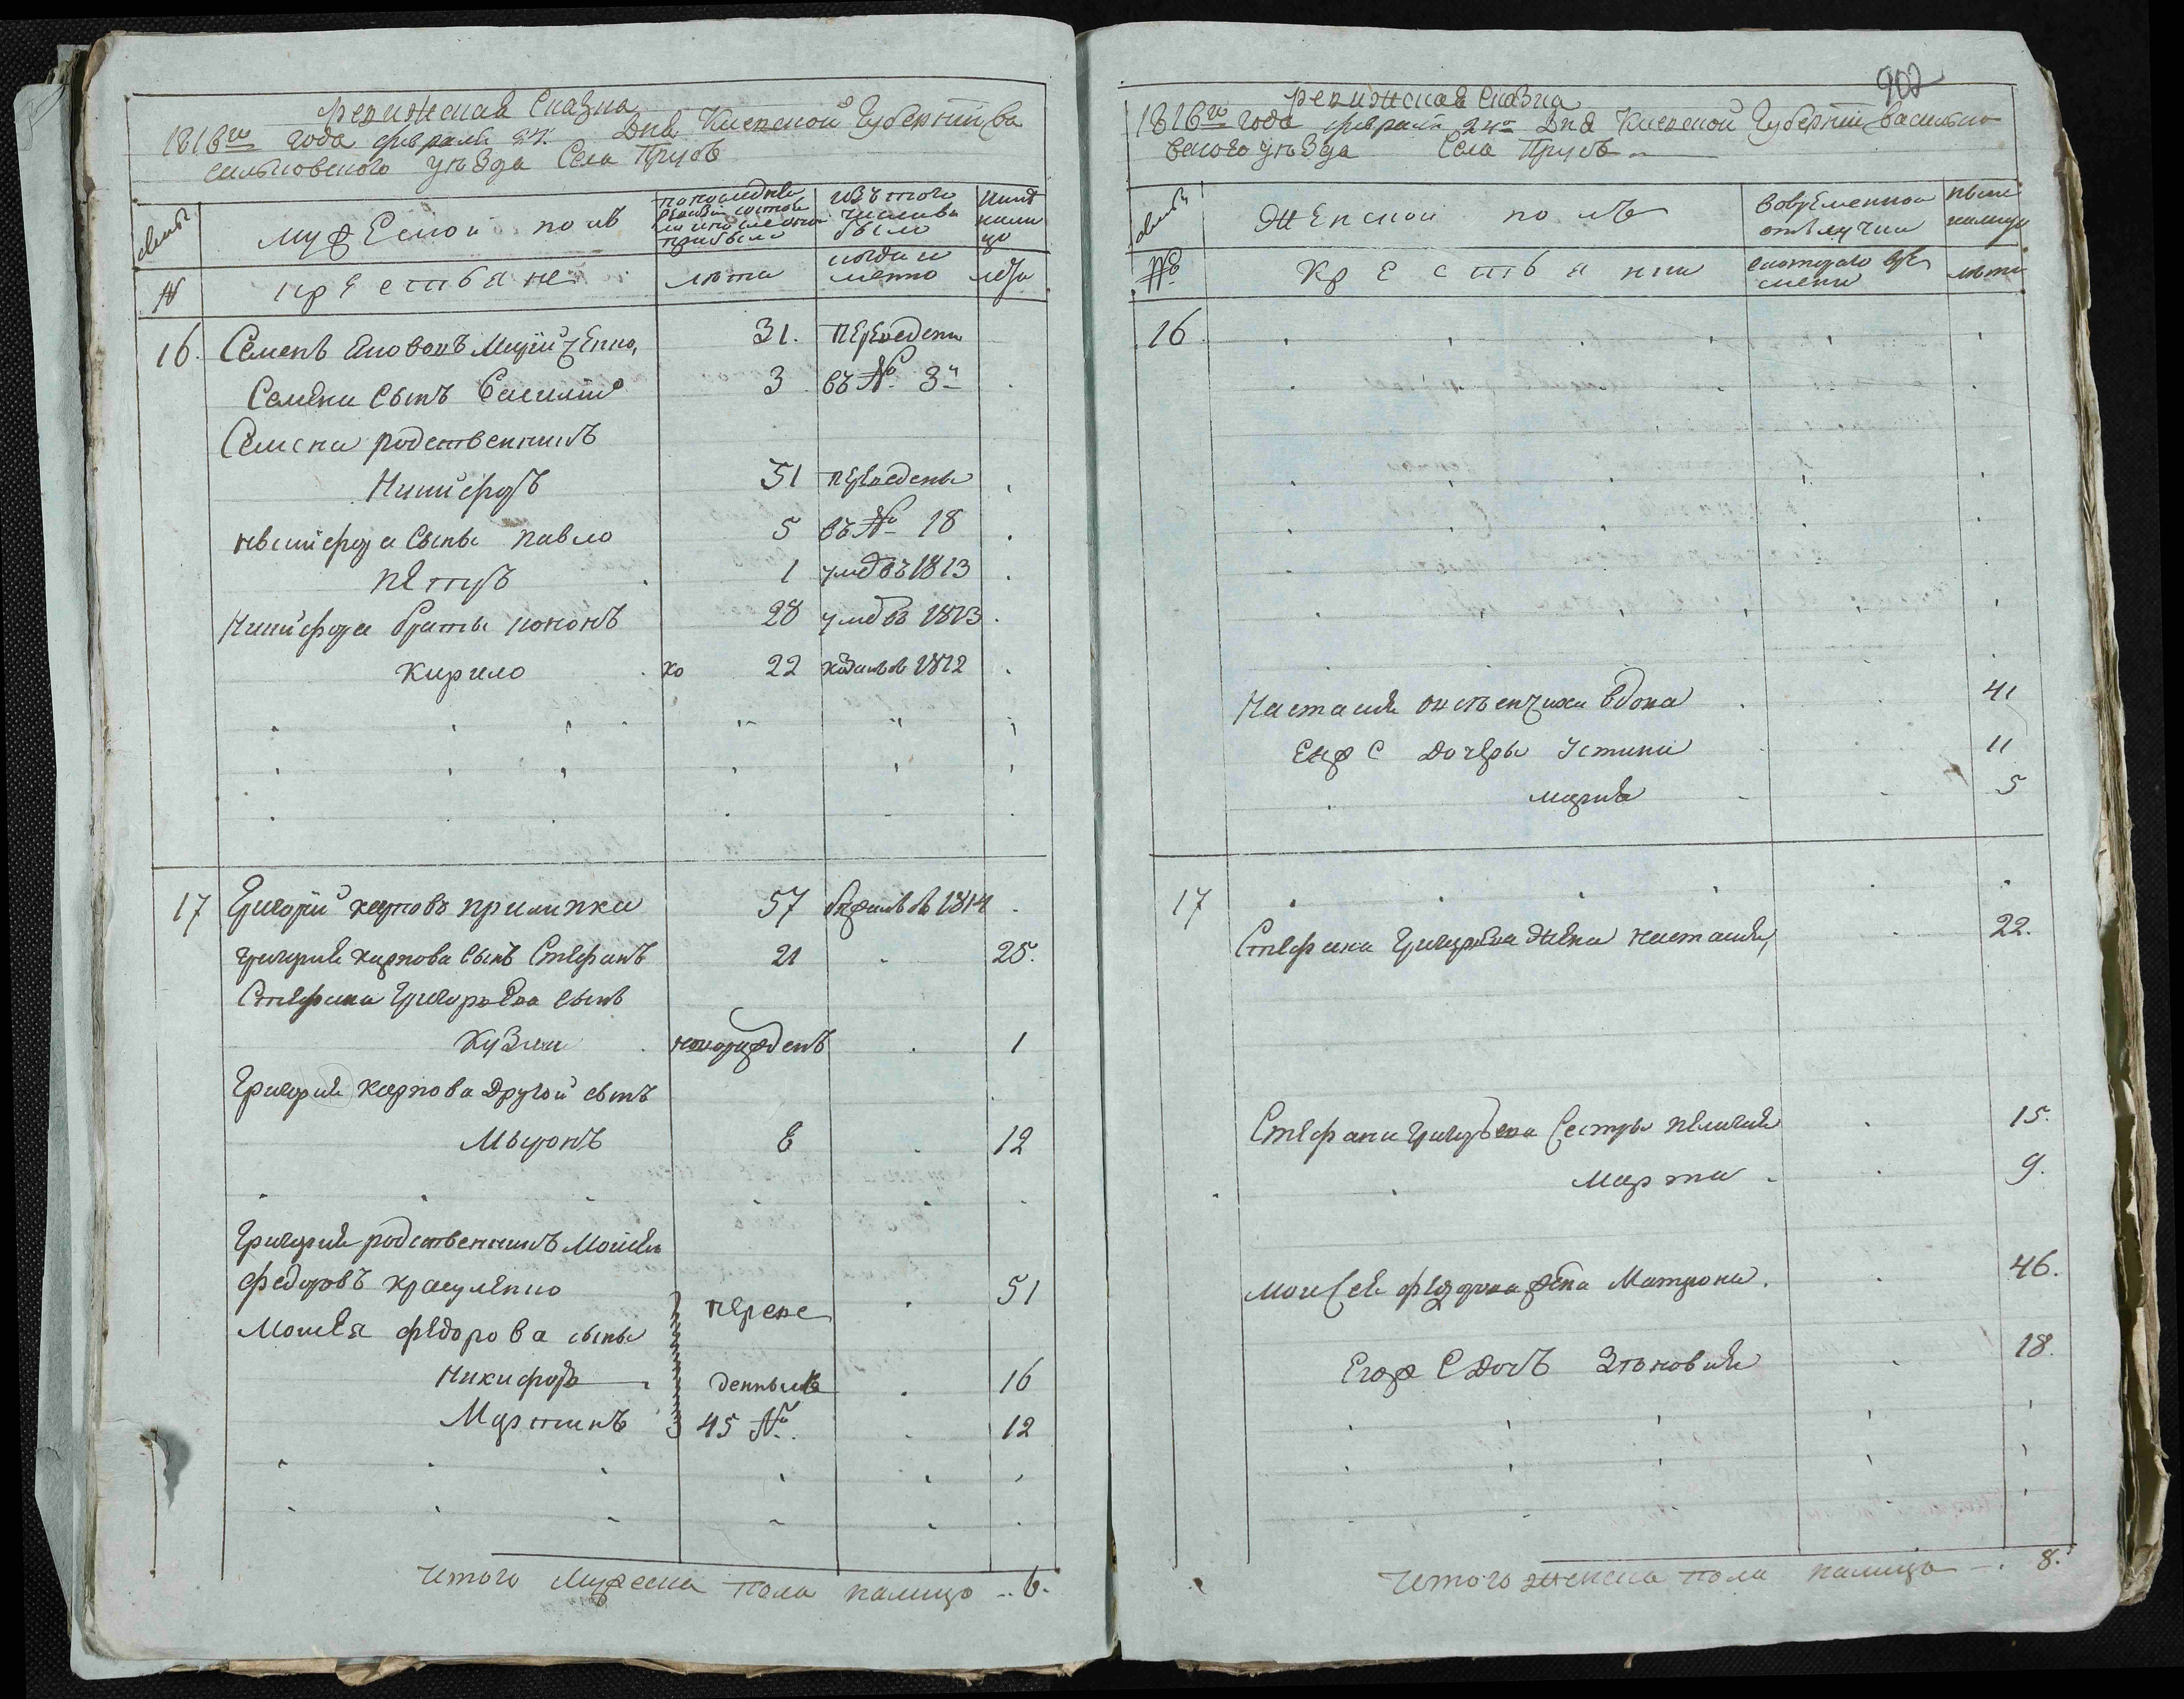 ревижская Сказка
1816го года февраля 24. Дня Киевской Губернии Ва
сильковского уѣзда Села Прусъ
семьи
мужеской полъ
по последней ревизии состояло и после оной прибыло
изъ того числа выбыло
нынѣ налицо
№
крестьяне
лѣта
когда именно
лѣта
16. Семенъ Якововъ 31. переведены
Семена сынъ Василій 3 въ № 3й
Семена родственникъ
Никифоръ 31 переведены
Никифора сыны павло 5 въ № 18
петръ 1 умеръ въ 1813
Никифора браты кононъ 28 умеръ въ 1813
Кирило 22 1812
17 Григорій карповъ прилипка 57 1814
григорія карпова сынъ Стефанъ 21 25.
Стефана Григорьева сынъ
Кузма новорожденъ 1
Григория карпова другой сынъ
Миронъ 8 12
Григория родственникъ Моисей
федоровъ 51
Моисея федорова сыны
переве
Никифоръ денные 16
Мартинъ 45 № 12
Итого мужеска пола налицо 6.
902
ревижская Сказка
1816го года февраля 24го Дня Киевской Губернии Василько
вского уѣзда Села Прусъ
семьи
Женской полъ
во временной отлучки
нынѣ налицо
№
Крестьянки
с которого времени
лѣта
16
Настасия вдова 41
Ея дочеры Устина 11
мария 5
17
Стефана Григорьева жена настасия 22.
Стефана григорьева Сестры пелагия 15.
Марта 9.
Моисея федорова жена Матрона. 46.
Его дочь Зѣновия 18.
Итого женска пола налицо 8.